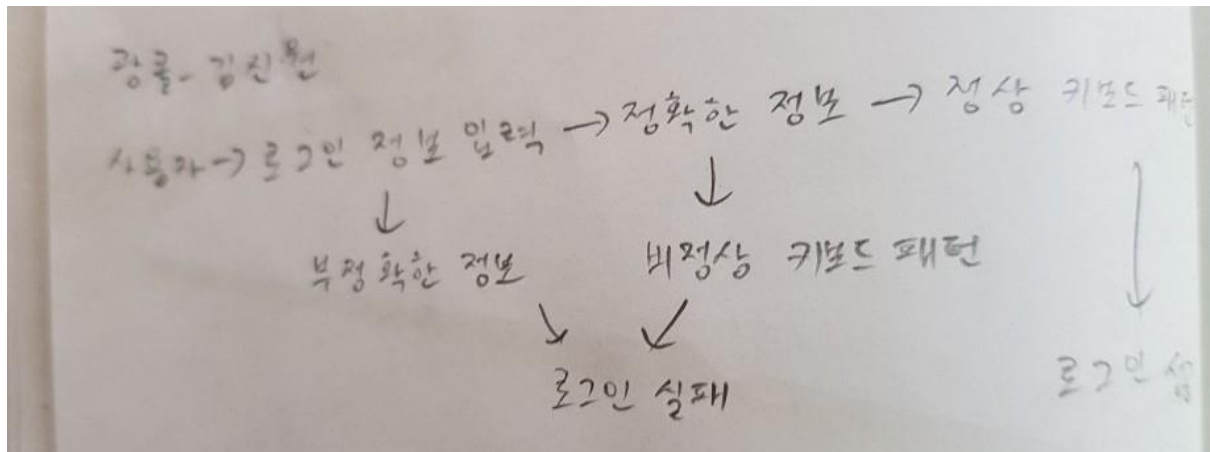 광클-김진원
사용자→로그인 정보 입력→정확한 정보→정상 키보드 패턴
↓ ↓ ↓
부정확한 정보 비정상 키보드 패턴
↘ ↙
로그인 실패 로그인